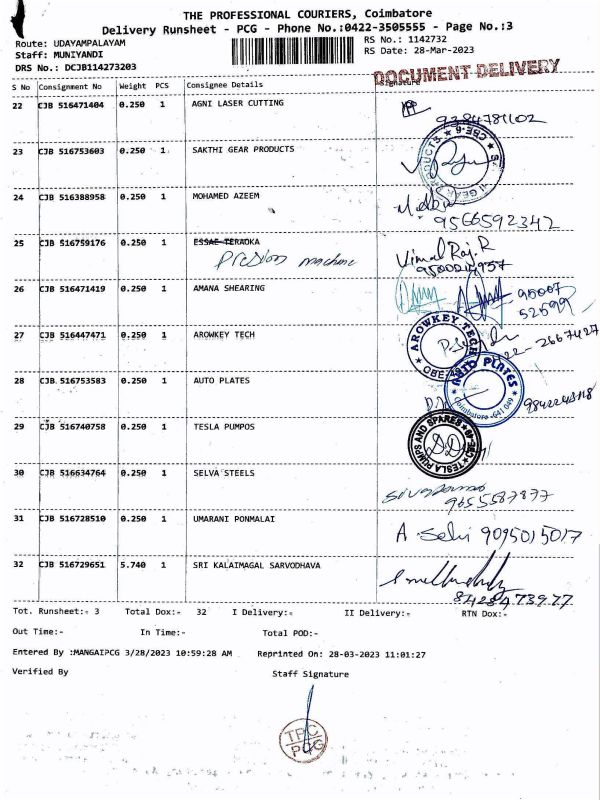 THE PROFESSIONAL COURIERS, Coimbatore
Delivery Runsheet - PCG - Phone No.:0422-3505555 - Page No.:3
Route: UDAYAMPALAYAM
RS No.: 1142732
Staff: MUNIYANDI
RS Date: 28-Mar-2023
DRS No.: DCJB114273203
DOCUMENT DELIVERY
S No Consignment No Weight PCS Consignee Details Signature
22 CJB 516471404 0.250 1 AGNI LASER CUTTING
9384781102
23 CJB 516753603 0.250 1 SAKTHI GEAR PRODUCTS
24 CJB 516388958 0.250 1 MOHAMED AZEEM
9566592342
25 CJB 516759176 0.250 1 ESSAE TERAOKA
Vimal Raj.R
machine
26 CJB 516471419 0.250 1 AMANA SHEARING
95007
52599
27 CJB 516447471 0.250 1 AROWKEY TECH
AROWKEY TECH
2667427
28 CJB 516753583 0.250 1 AUTO PLATES
AUTO PLATES
Coimbatore -641 049
29 CJB 516740758 0.250 1 TESLA PUMPOS
TESLA PUMPS AND SPARES
30 CJB 516634764 0.250 1 SELVA STEELS
9655587877
31 CJB 516728510 0.250 1 UMARANI PONMALAI
A Selvi 9095015017
32 CJB 516729651 5.740 1 SRI KALAIMAGAL SARVODHAVA
8428473977
Tot. Runsheet:- 3 Total Dox:- 32 I Delivery:- II Delivery:- RTN Dox:-
Out Time:- In Time:- Total POD:-
Entered By :MANGAIPCG 3/28/2023 10:59:28 AM Reprinted On: 28-03-2023 11:01:27
Verified By Staff Signature
TPC
PCG